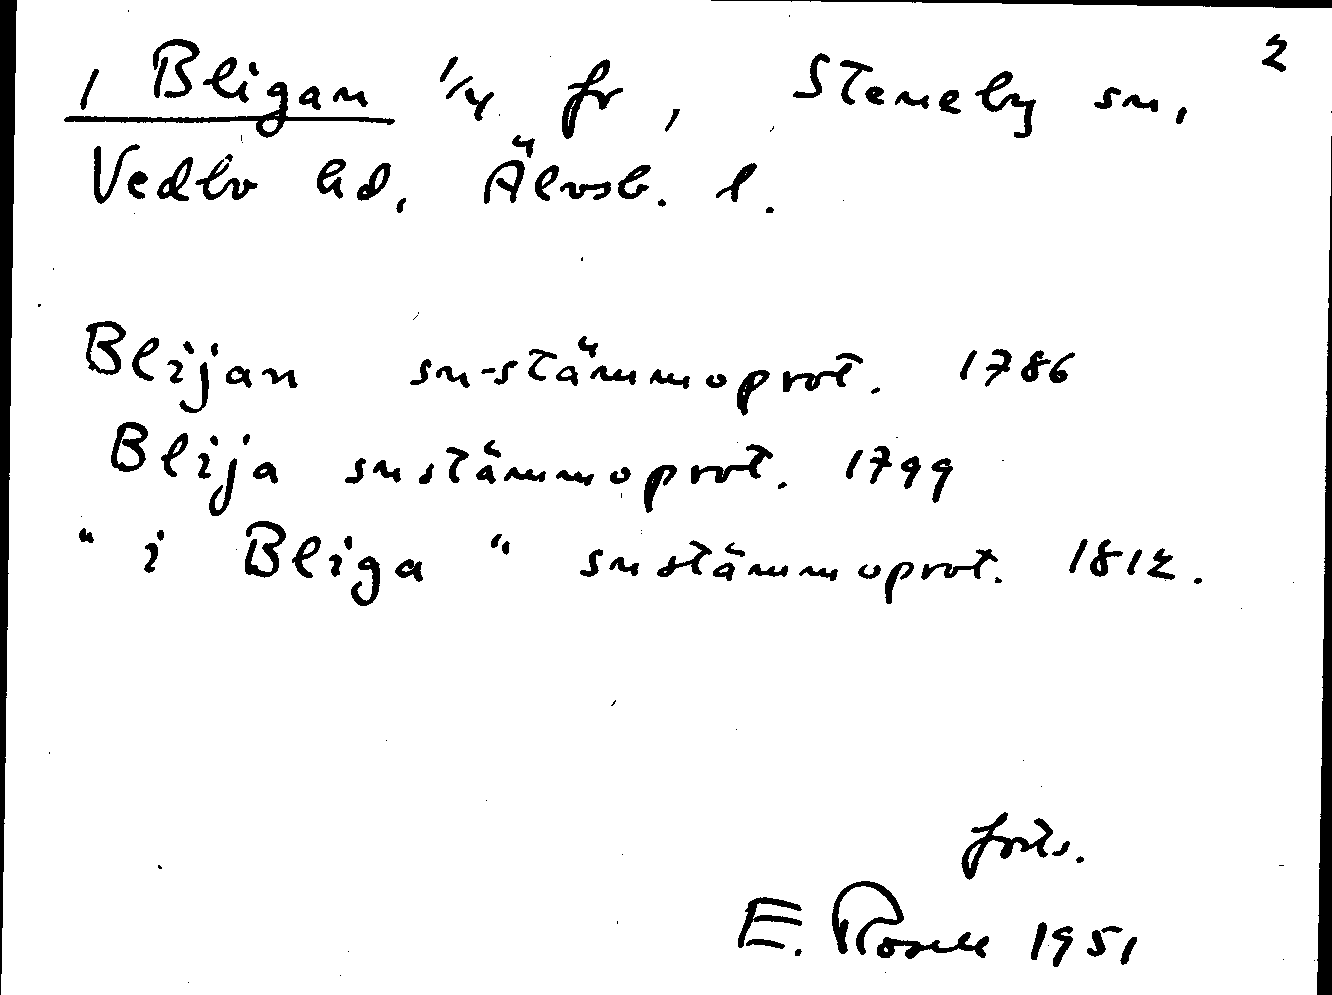 2
1 Bligan 1/4 fr, Steneby sn,
Vedbo hd, Älvsb. l.
Blijan sn-stämmoprot. 1786
Blija snstämmoprot. 1799
"i Bliga" snstämmoprot. 1812.
forts.
E. Rosell 1951